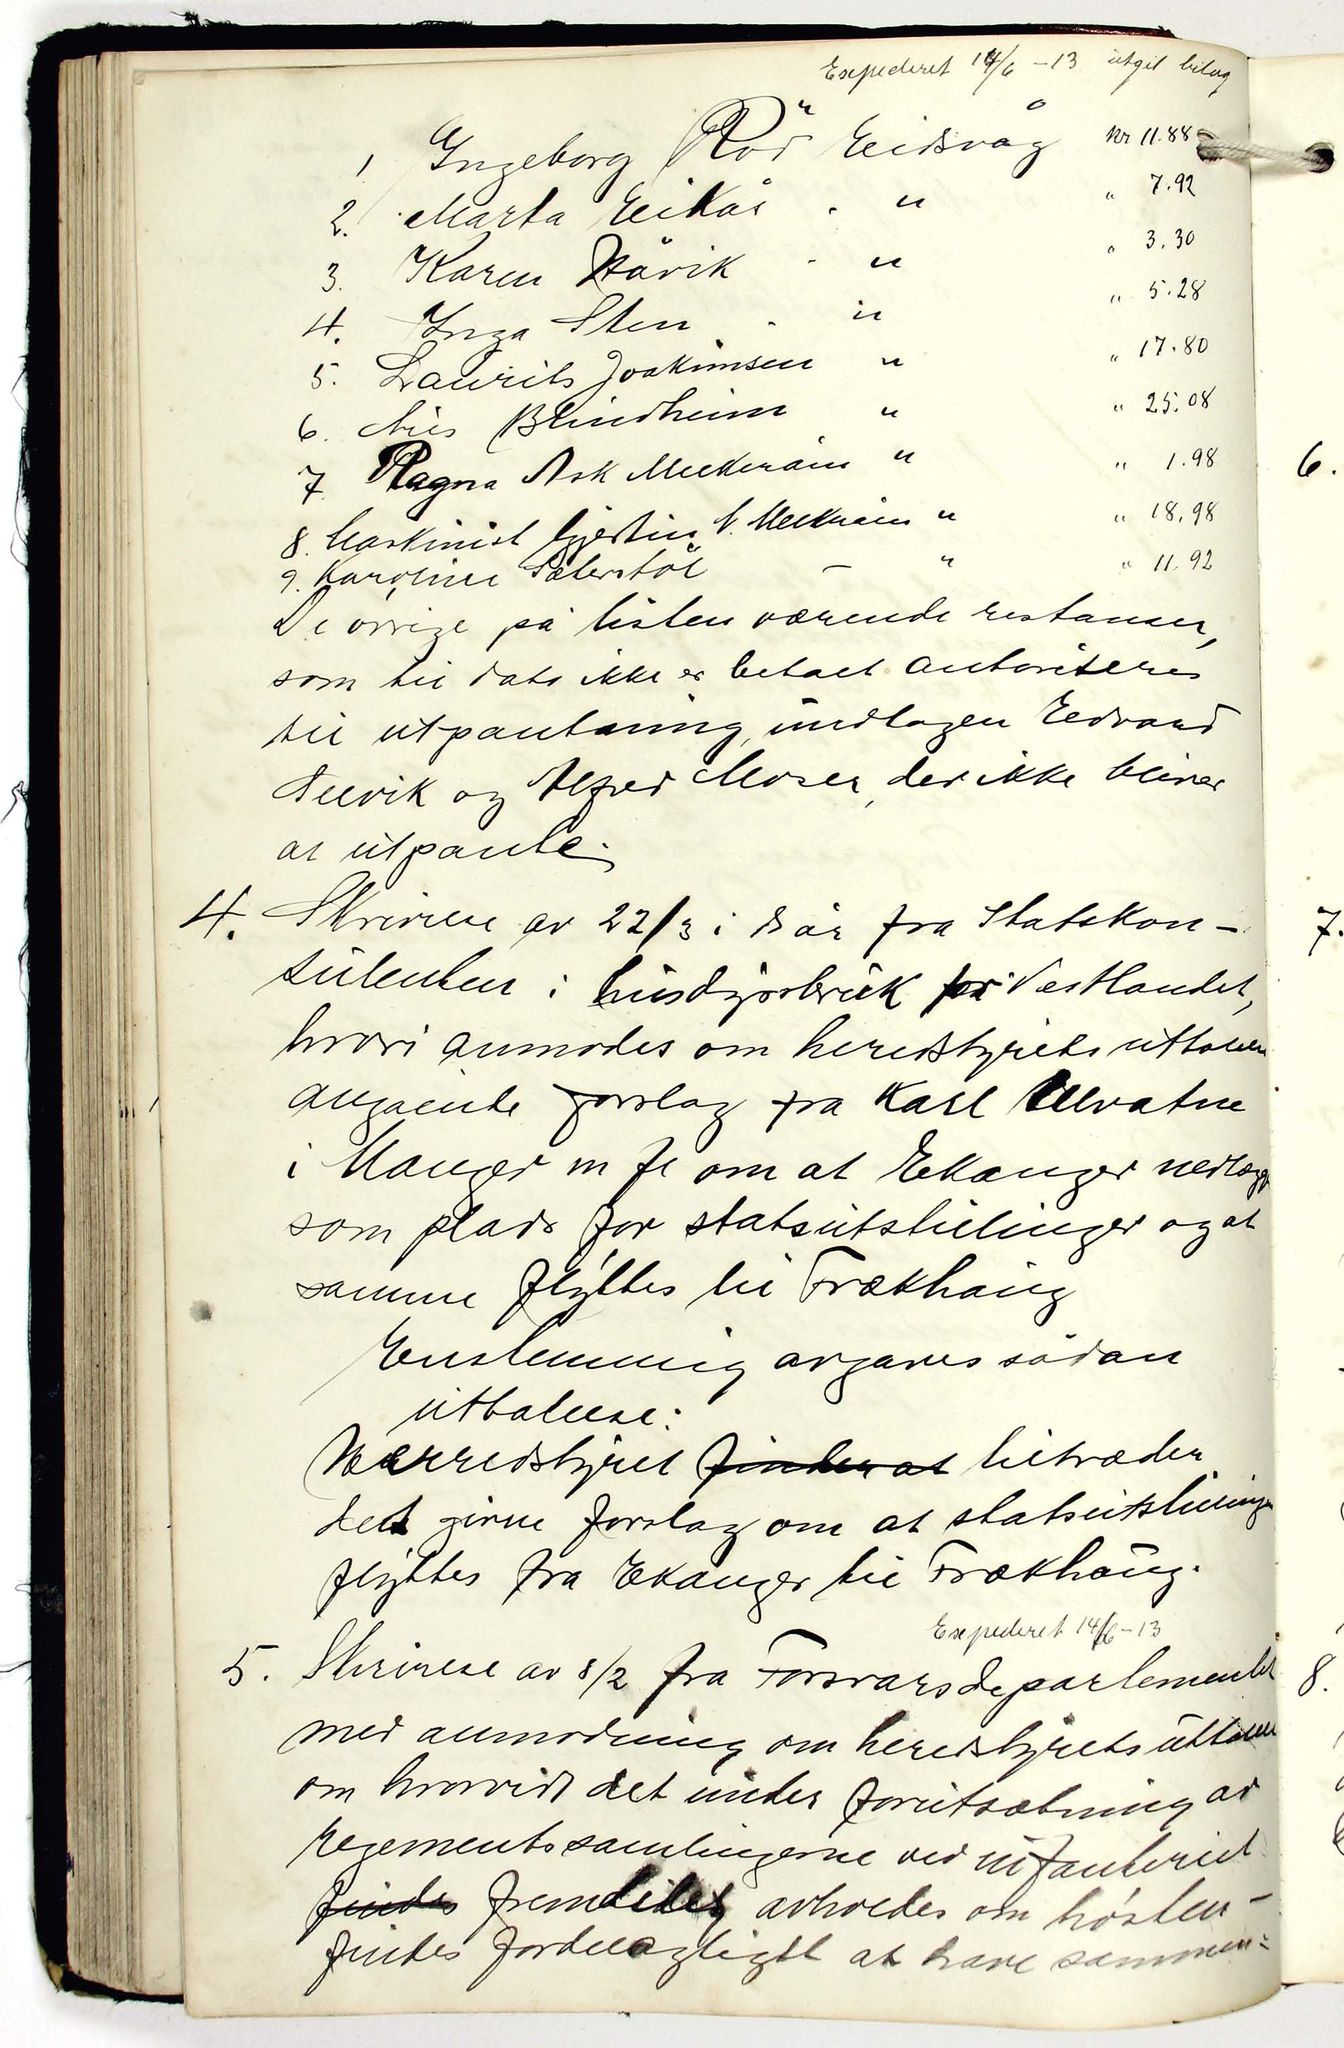 Expederet 14/6 -13 utgit bilag
1. Ingeborg Röd Eidsvåg Kr 11.88
2. Marta Eikås . " " 7.92
3. Karen Håvik . " " 3.30
4. Inga Sten . " " 5.28
5. Laurits Joakimsen " " 17.80
6. Nils Blindheim " " 25.08
7 Ragna Ask " " 1.98
8. Maskinist Gjertin N. " " 18,98
9. Karoline Sæterstöl — " " 11.92
De övrige på listen værende restanser,
som til dato ikke er betalt autoriseres
til utpantning, undtagen Edvard
og Alfred Moser, der ikke bliver
at utpante.
4. Skrivelse av 22/3 i år fra Statskon-
sulenten i husdyrbruk for Vestlandet,
hvori anmodes om heredstyrets uttalelse
angaaende forslag fra Karl Ulvatne
i Manger m fl om at Eikanger nedlægges
som plads for statsutstillinger og at
samme flyttes til Frækhaug
Enstemmig avgaves sådan
uttalelse:
Herredstyret finder at tiltræder
det givne forslag om at statsutstillingen
flyttes fra Ekanger til Frækhaug.
Expederet 14/6-13
5. Skrivelse av 8/2 fra Forsvarsdepartementet
med anmodning om heredstyrets uttalelse
om hvorvidt det under forutsætning av
regementssamlingerne ved infanteriet
findes fremdeles avholdes om hösten -
findes fordelagtigst at have sammen-
6.
7.
8.